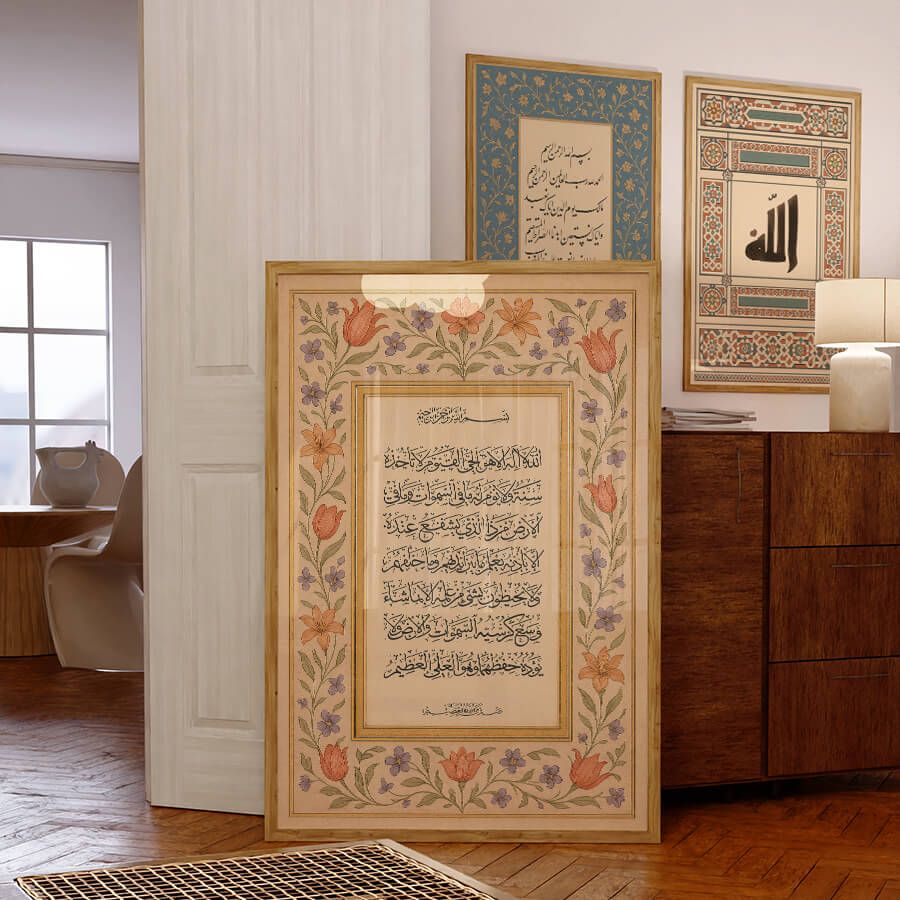 بسم الله الرحمن الرحيم
الحمد لله رب العالمين الرحمن الرحيم
مالك يوم الدين اياك نعبد
واياك نستعين اهدنا الصراط المستقيم
الله
بسم الله الرحمن الرحيم
الله لا اله الا هو الحي القيوم لا تأخذه
سنة ولا نوم له ما في السموات وما في
الارض من ذا الذي يشفع عنده
الا باذنه يعلم ما بين ايديهم وما خلفهم
ولا يحيطون بشيء من علمه الا بما شاء
وسع كرسيه السموات والارض ولا
يؤده حفظهما وهو العلي العظيم